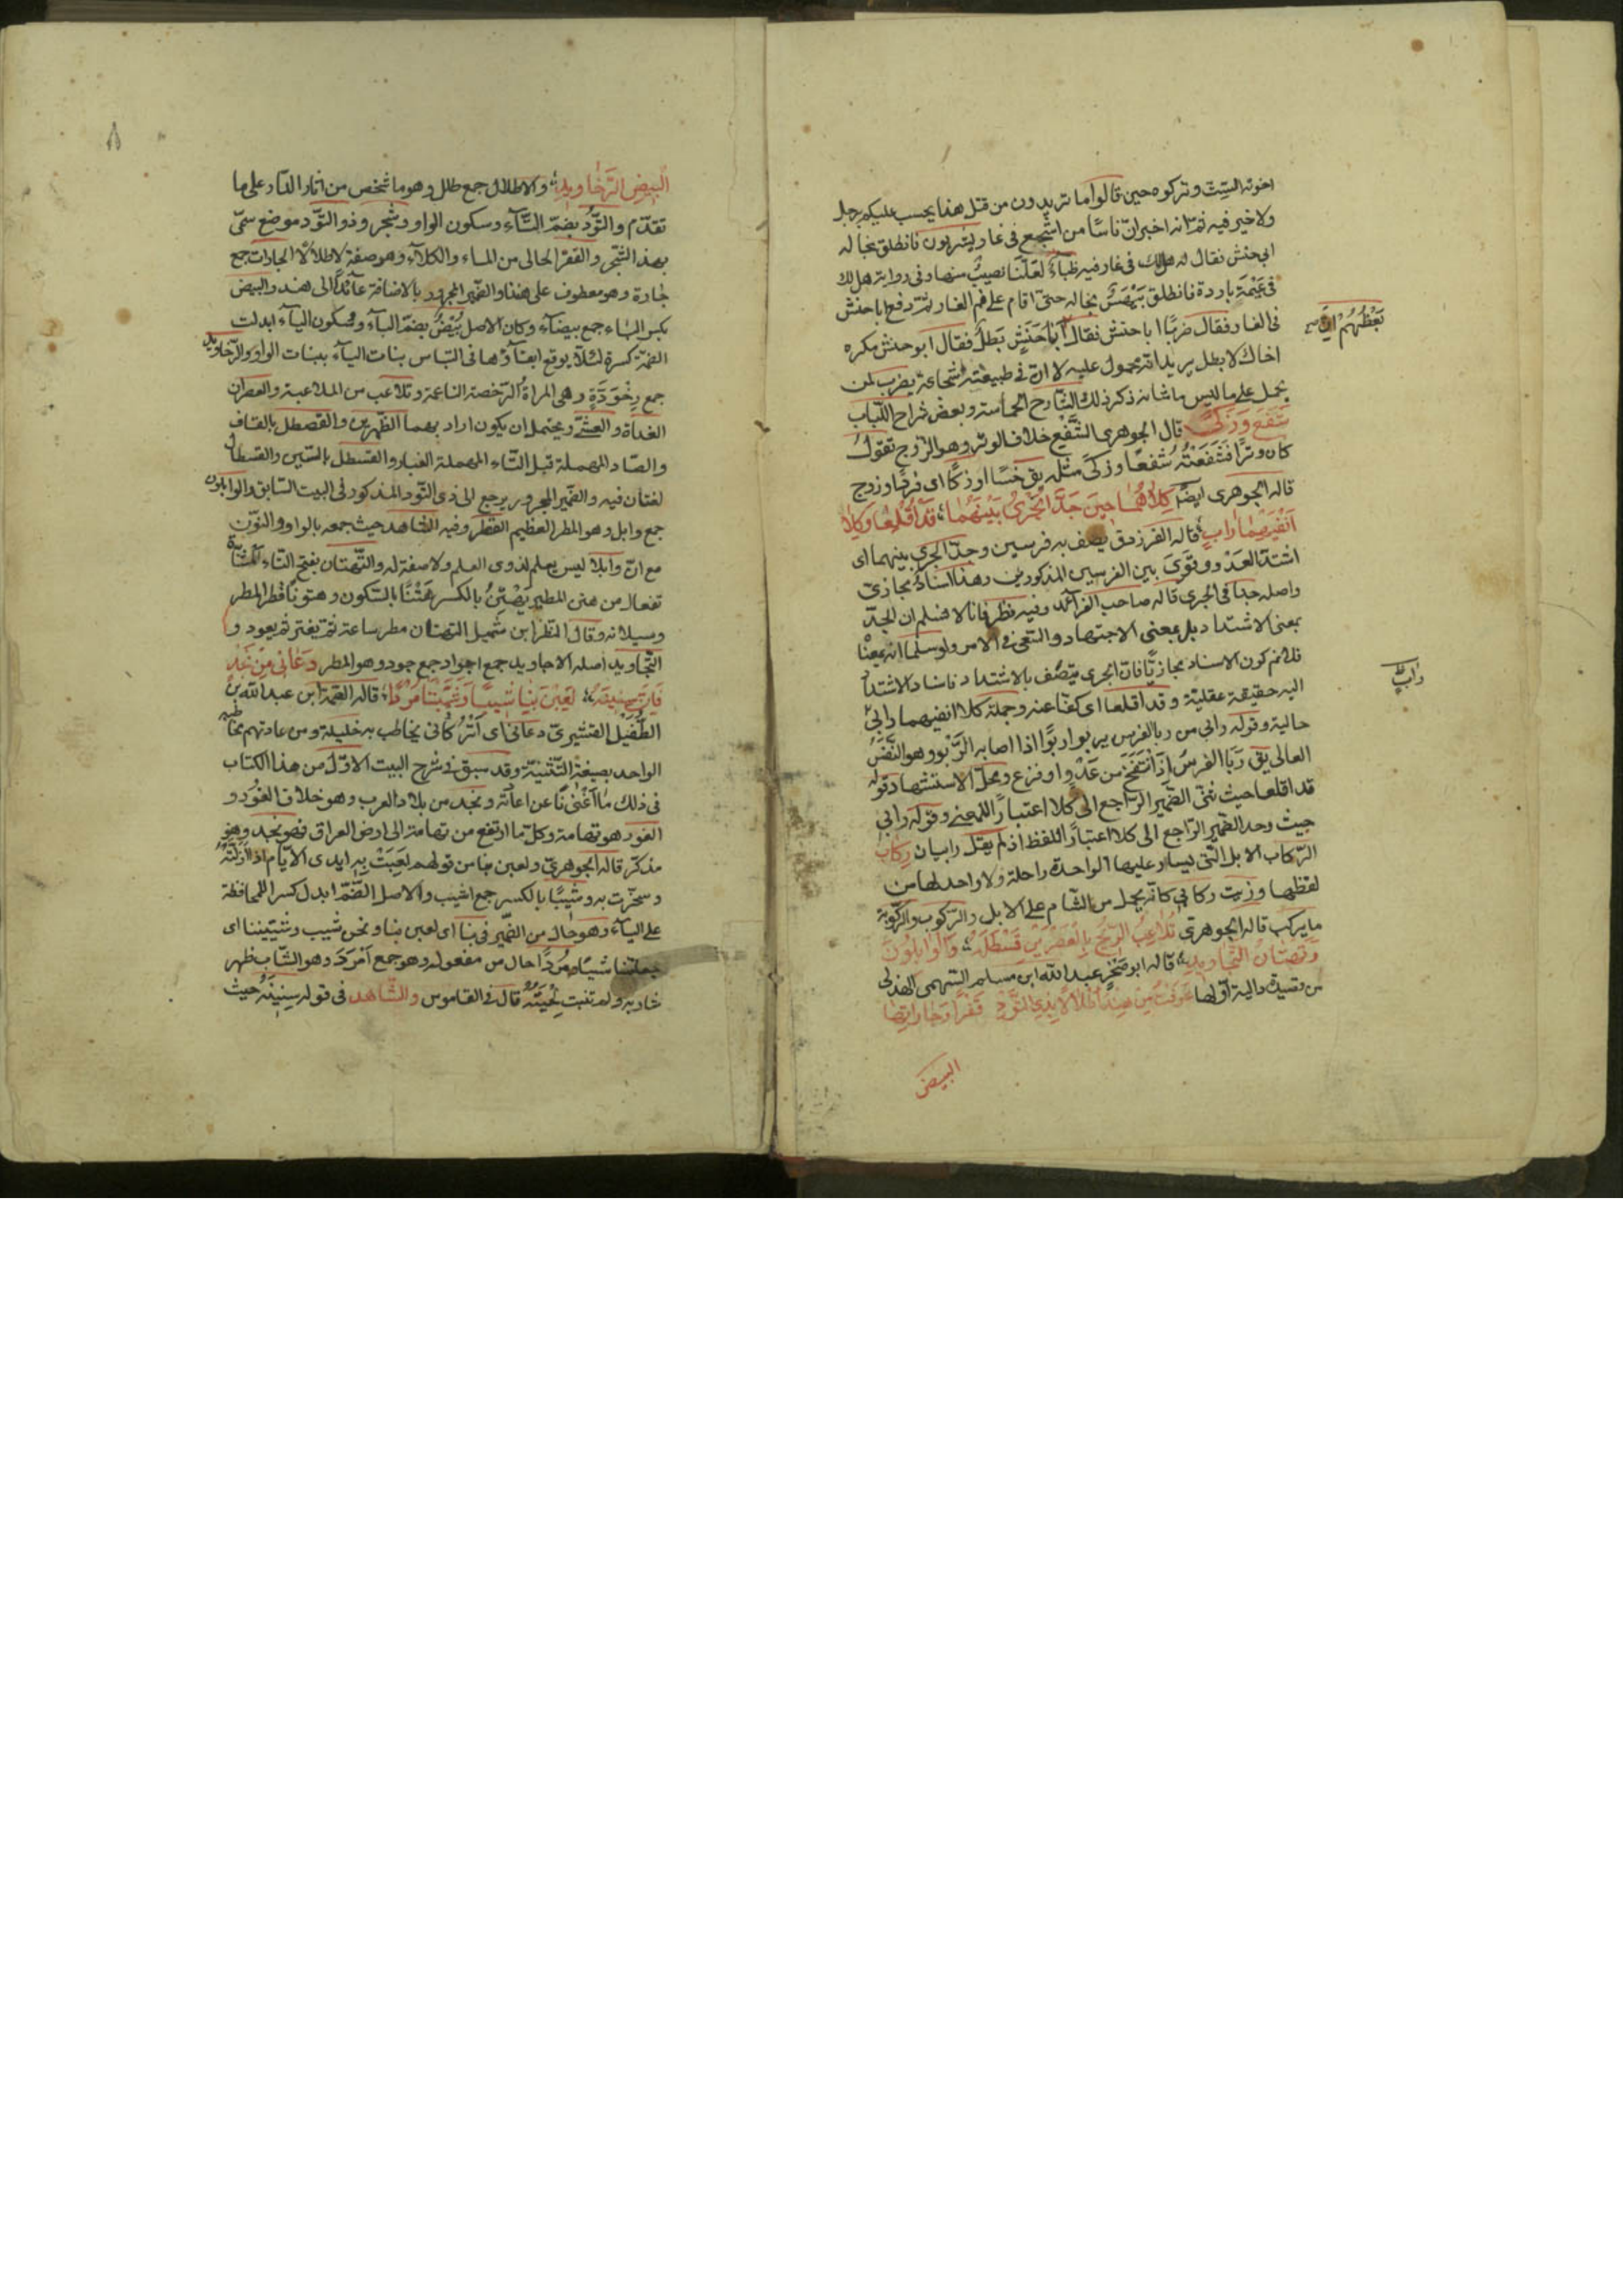 اخوته الستّة وتركوه حين قالوا ما تريدون من قتل هذا يحسب عليكم برجل
ولا خير فيه ثمّ انه اخبر انّ ناسًا من اشجع فى غار يشربون فانطلق بخاله
ابى حنش فقال له هل لك فى غار فيه ظباءٌ لعلّنا نصيب منها وفى رواية هل لك
فى غنيمة باردة فانطلق بيهس بخاله حتىّ اقام على فم الغار ثمّ دفع ابا حنش
فى الغار فقال ضربًا ابا حنش فقال بعضهم انّ ابا حنش بطل فقال ابو حنش مكره
اخاك لا بطل يريد انه محمول عليه لا انّ فى طبيعته شجاعة يضرب لمن
يحمل على ما ليس من شانه ذكر ذلك الشارح الحماسة وبعض شراح اللّباب
شَفع وَزَكىً قال الجوهرى الشّفع خلاف الوتر وهو الزوج تقول
كان وترًا فشفعته شفعًا وزكىً مثله يق خسًا او زكًا اى فردًا وزوج
قاله الجوهرى ايضًا كِلاهُمَا حِينَ جَدَّ الجَرىُ بَيْنَهُمَا قَدْ اَقْلَعَا وَكِلا
اَنْفَيْهِمَا رابٍ قاله الفرزدق يصف به فرسين وجدّ الجرى بينهما اى
اشتدّ العدو وقوى بين الفرسين المذكورين وهذا اسناد مجازى
واصله جدّا فى الجرى قاله صاحب الفرائد وفيه نظر فانا لا نسلم ان الجدّ
بمعنى الاشتداد بل بمعنى الاجتهاد والتعنى فى الامر ولو سلمنا انه بمعناه
فلا نم كون الاسناد مجازيًّا فانّ الجرى يتصف بالاشتداد فاسناد الاشتداد
اليه حقيقة عقليّة وقد اقلعا اى كفّا عنه وجملة كلا انفيهما رابى
حالية وقوله رابى من ربا الفرس يربو اربوًا اذا اصابه الرّبو وهو النفس
العالى يق ربا الفرس اذا انتفخ من عدو او فزع ومحلّ الاستشهاد قوله
قد اقلعا حيث ثنّى الضّمير الراجع الى كلا اعتبارًا للمعنى وقوله رابى
حيث وحد الضمير الرّاجع الى كلا اعتبارًا للفظ اذ لم يقل رابيان رِكابٌ
الرّكاب الابل التّى يسار عليها الواحدة راحلة ولا واحد لها من
لفظها وزيت ركابى كانّه يحمل من الشّام على الابل والرّكوب والرّكوبة
ما يركب قاله الجوهرى تُلاعِبُ الرّيحَ بِالعَصْرَيْنِ قَسْطَلَهُ وَالْوابِلُونَ
وَتَهتَانُ التّجَاويدِ قاله ابو صخر عبد الله ابن مسلم السّهمى الهذلى
من قصيدة دالية اوّلها عَرَفْتُ مِنْ هِنْدَ اَطْلالاً بِذِى التُّودِ قَفْرًا وَجَاراتِهَا
البيض
بعضهم انّ صح
رابٍ ظ
البِيضِ الرَّخَاويدِ والاطلال جمع طلل وهو ما شخص من اثار الدّار على ما
تقدّم والتّود بضمّ التّاء وسكون الواو وشجر وذو التّود موضع سمّى
بهذا الشّجر والقفر الخالى من الماء والكلاء وهو صفة لاطلالا الجارات جمع
جارة وهو معطوف على هند والضّمير المجرور بالاضافة عائد الى هند والبيض
بكسر الباء جمع بيضاء وكان الاصل بيض بضمّ الباء وسكون الياء ابدلت
الضّمة كسرة لئلّا يوقع ابقاؤها فى التباس بنات الياء ببنات الواو والرّخاويد
جمع رخودّة وهى المراة الرّخصة الناعمة وتلاعب من الملاعبة والعصران
الغداة والعشىّ ويحتمل ان يكون اراد بهما الظهرين والقصطل بالقاف
والصّاد المهملة قبل الطّاء المهملة الغبار والقسطل بالسّين والقسطال
لغتان فيه والضّمير المجرور يرجع الى ذى التّود المذكور فى البيت السّابق والوابلون
جمع وابل وهو المطر العظيم القطر وفيه الشّاهد حيث جمعه بالواو والنوّن
مع انّ وابلا ليس بعلم لذوى العلم ولا صفة له والتّهتان بفتح التّاء المثنّاة
تفعال من هتن المطر يهتن بالكسر هتنًا بالسّكون وهتونًا قطر المطر
وسيلانه وقال النضر ابن شميل التهتان مطر ساعة ثمّ يفتر ثم يعود و
التّجاويد اصله الاجاويد جمع اجواد جمع جود وهو المطر دَعَانِى مِنْ نَجْدٍ
فَاِنَّ سِنِينَهُ لَعِبْنَ بِنَا شِيبًا وَشَيَّبْنَنَا مُرْدًا قاله الصّمّة ابن عبد الله بن
الطّفيل القشيرىّ دعانى اى اتركانى يخاطب به خليله ومن عادتهم مخاطبة
الواحد بصيغة التّثنية وقد سبق فى شرح البيت الاوّل من هذا الكتاب
فى ذلك ما اغنانا عن اعادته ونجد من بلاد العرب وهو خلاف الغور و
الغور هو تهامة وكل ما ارتفع من تهامة الى ارض العراق فهو نجد وهو
مذكّر قاله الجوهرىّ ولعبن بنا من قولهم لعبت به ايدى الايّام اذا اذلّته
وسخرت به وشيبًا بالكسر جمع اشيب والاصل الضّمّ ابدل كسرا للمحافظة
على الياء وهو حال من الضّمير فى بنا اى لعبن بنا ونحن شيب وشيّبننا اى
جعلننا شيبًا ومردًا حال من مفعوله وهو جمع امرد وهو الشّاب ظهر
شاربه ولم تنبت لحيته قال فى القاموس والشّاهد فى قوله سنينه حيث